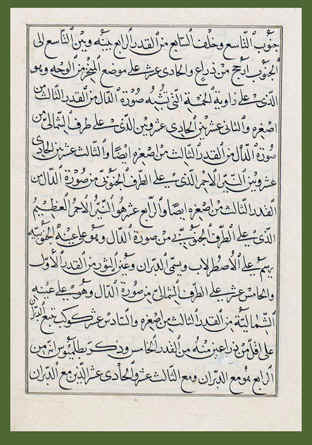 جنوب التاسع وخلف التاسع من القدر الرابع بينه وبين التاسع الى
الجنوب ارجح من ذراع والحادى عشر على موضع المنخرين من الوجه وهو
الذى على زاوية الخمسة التى تشبه صورة الدال من القدر الثالث من
اصغره والثانى عشر بين الحادى عشر وبين الذى على طرف الشمالى من
صورة الدال من القدر الثالث من اصغره ايضا والثالث عشر بين الحادى
عشر وبين النير الاحمر الذى على الطرف الجنوبى من صورة الدال من
القدر الثالث من اصغره ايضا والرابع عشر هو النير الاحمر العظيم
الذى على الطرف الجنوبى من صورة الدال وهو على عينه الجنوبية
يرسم على الاصطرلاب ويسمى الدبران وعين الثور من القدر الاول
والخامس عشر على الطرف الشمالى من صورة الدال وهو على عينه
الشمالية من القدر الثالث من اصغره والسادس عشر كوكب يتبع الدبران
على اقل من ذراعين منه من القدر الخامس وذكر بطلميوس انه من
الرابع وهو مع الدبران ومع الثالث عشر والحادى عشر الذين مع الدبران